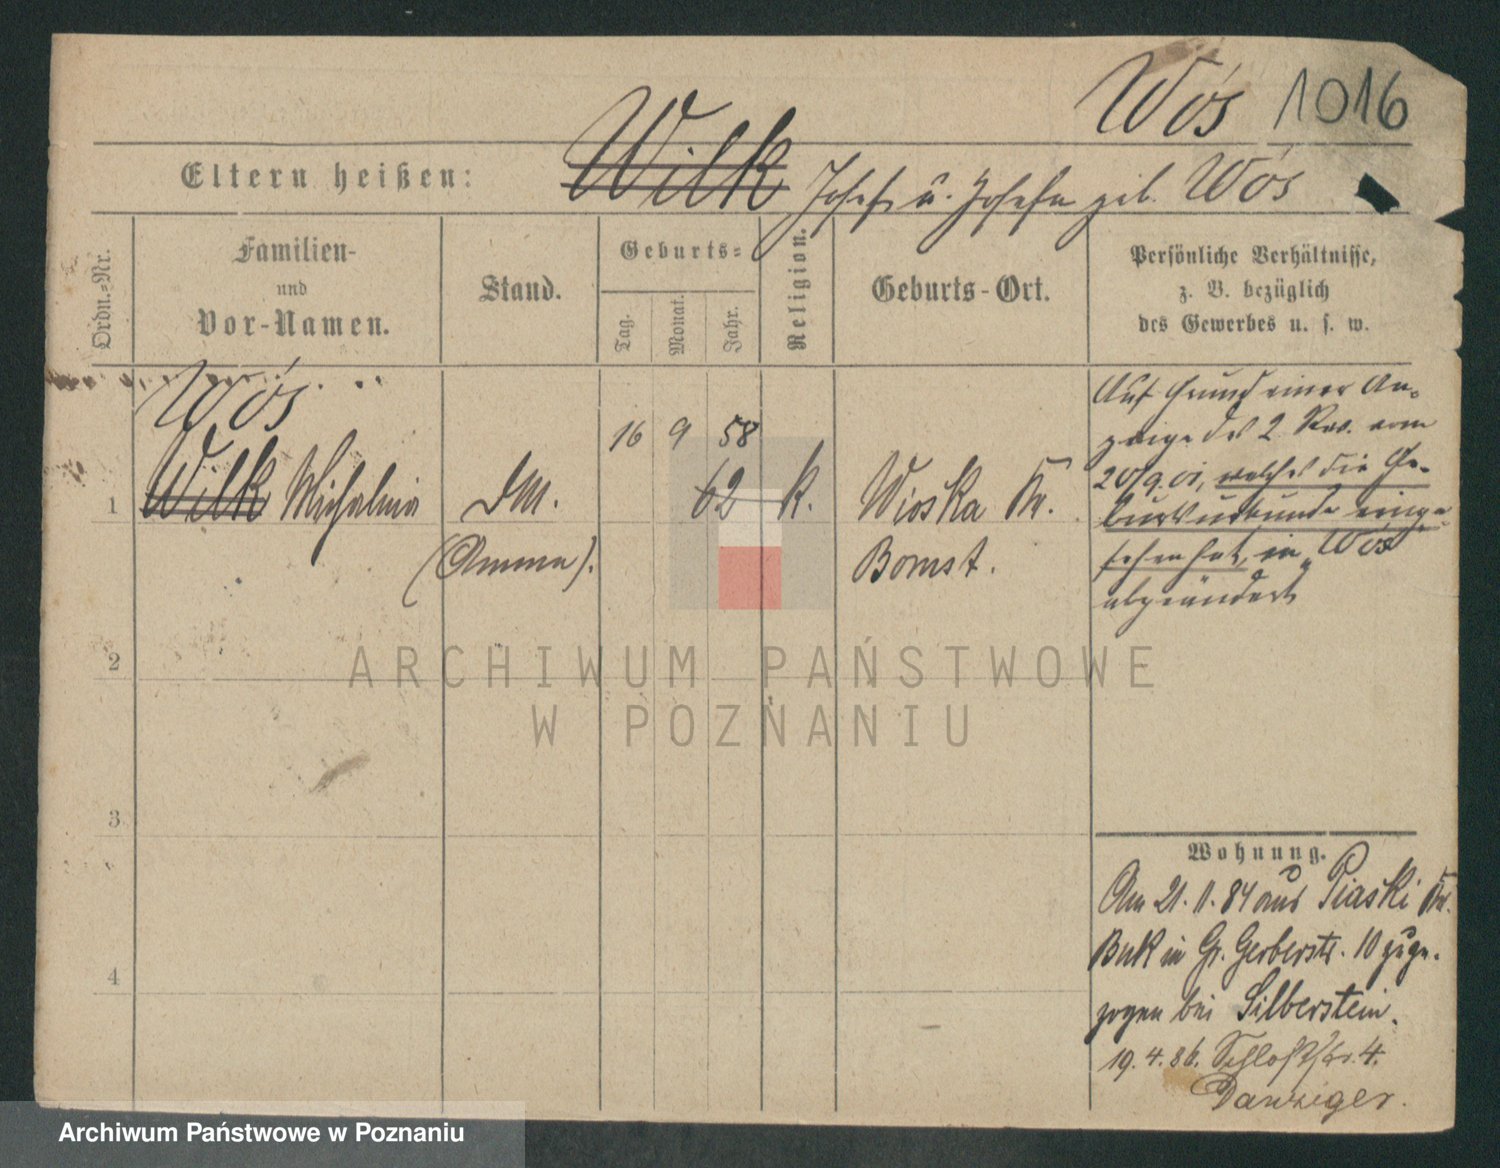 Wós 1016
Eltern heißen: Wilk Josef u. Josefa geb. Wós
Ordn.-Nr.
Familien-
und
Vor-Namen.
Stand.
Geburts-
Tag.
Monat.
Jahr.
Religion.
Geburts-Ort.
Persönliche Verhältnisse,
z. B. bezüglich
des Gewerbes u. s. w.
Wós
16 9 58
1 Wilk Michalina DM. 62 k. Wioska Kr.
(Amme). Bomst.
Auf Grund einer An-
zeige des 2. Rev. vom
20/9.01, welches die Ge-
burtsurkunde einge-
sehen hat, in "Wós
abgeändert
2
3
4
Wohnung.
Am 21.11.84 aus Piaski Kr.
Buk in Gr. Gerberstr. 10 zuge-
zogen bei Silberstein.
19.4.86. Schloßstr. 4.
Danziger.
ARCHIWUM PAŃSTWOWE
W POZNANIU
Archiwum Państwowe w Poznaniu